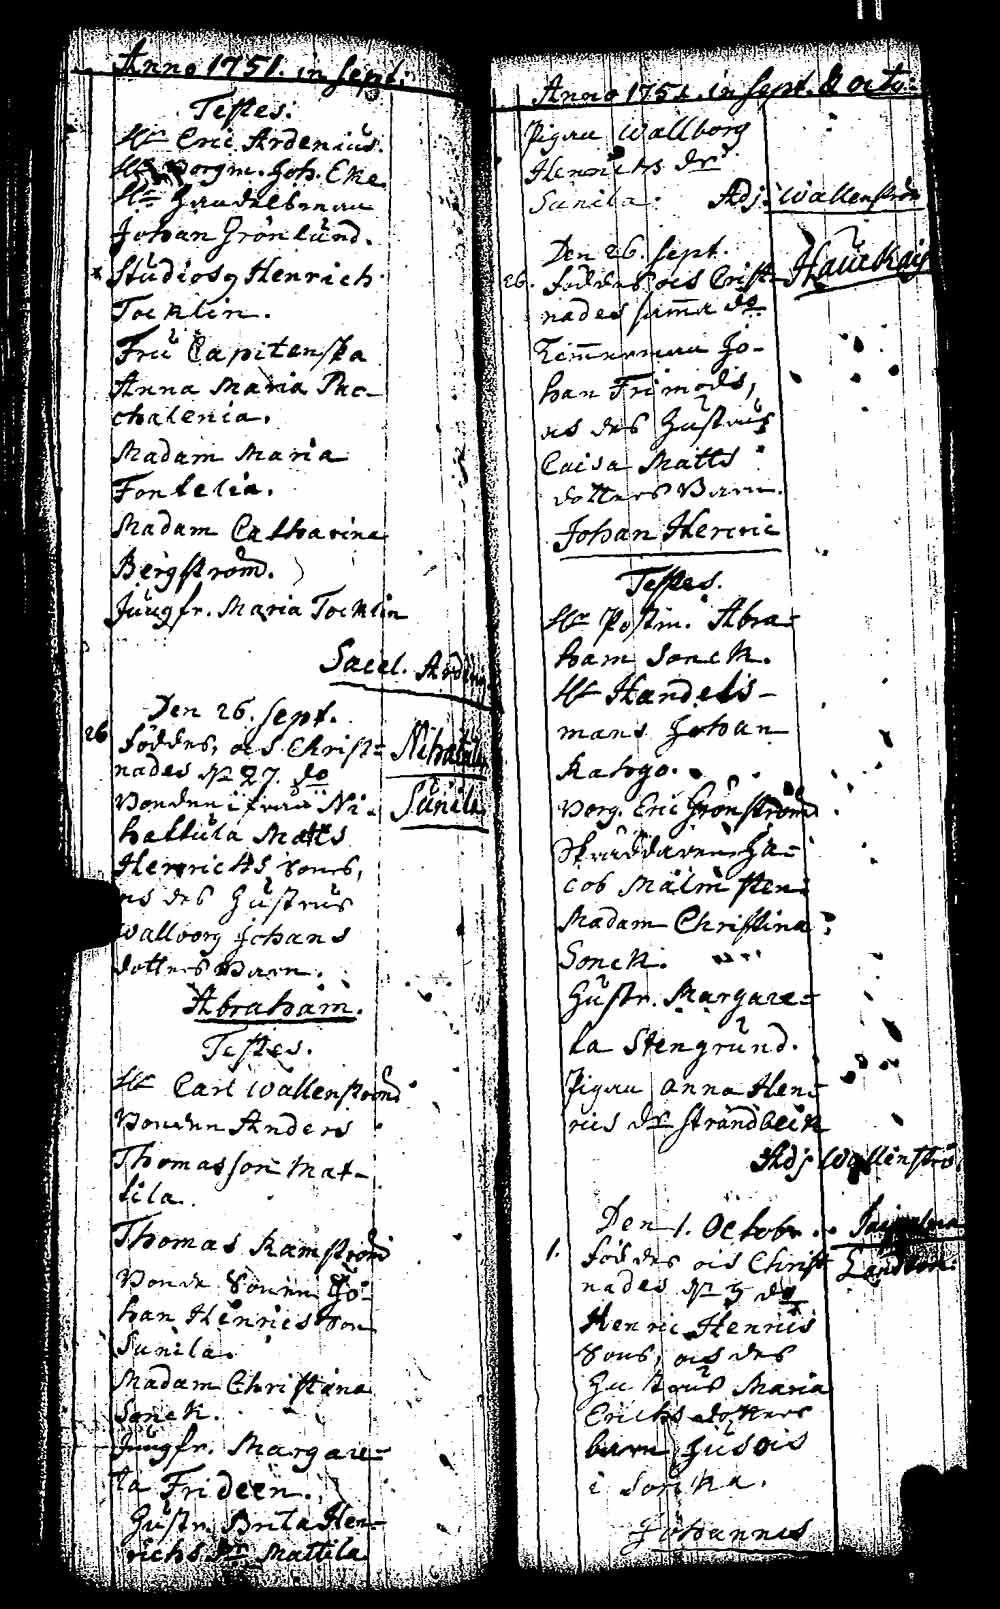 Anno 1751. in Sept:
Testes.
Hr Eric Ardenius.
Hr Borgm. Joh. Eke
Hr
Johan Grönlund.
x Studiosq Henrich
Tocklin.
Fru Capitenska
Anna Maria Pac-
chalenia.
Madam Maria
Fontelia.
Madam Catharina
Bergström.
Jungfr. Maria Tocklin
Sacel. Ardenius
Den 26. Sept.
26 föddes, ocs Christ=
nades dn 27. do
Bonden ifrån Ni-
hattula Matts
Henrichs Sons,
ocs des Hustrus
Wallborg Johans
dotters Barn.
Abraham.
Testes.
Hr Carl Wallenström
Bonden Anders
Thomasson Mat-
tila.
Thomas Ramström
Bonde Sonen Jo-
han Henrics Son
Sunila.
Madam Christina
Sonck.
Jungfr. Margare-
ta Frideen.
Hustr. Brita Hen-
richs dr Mattila
Nihattula
Sunila
Anno 1751. in Sept. & octo:
Pigan Wallborg
Henrichs dr
Sunila.
Adj: Wallenström
Den 26. Sept.
26. föddes ocs Crist-
nades samma do
Timmerman Jo-
han Frimods,
ocs des Hustrus
Caisa Matts
dotters Barn.
Johan Henric
Testes.
Hr Postm. Abra-
ham Sonck.
Hr Handels-
mans Johan
Kahgo.
Borg. Eric Grönström
Skräddaren Ja-
cob Malmsten
Madam Christina
Sonck.
Hustr. Margare-
ta Stengrund.
Pigan Anna Hen-
rics dr Strandbeck
Adj Wallenströ
Den 1. Octobr.
1. föddes ocs Christ
nades dn 3 do
Henric Henrics
Sons, ocs des
Hustrus Maria
Erichs dotters
barn Husocs
i Sorika.
Johannes